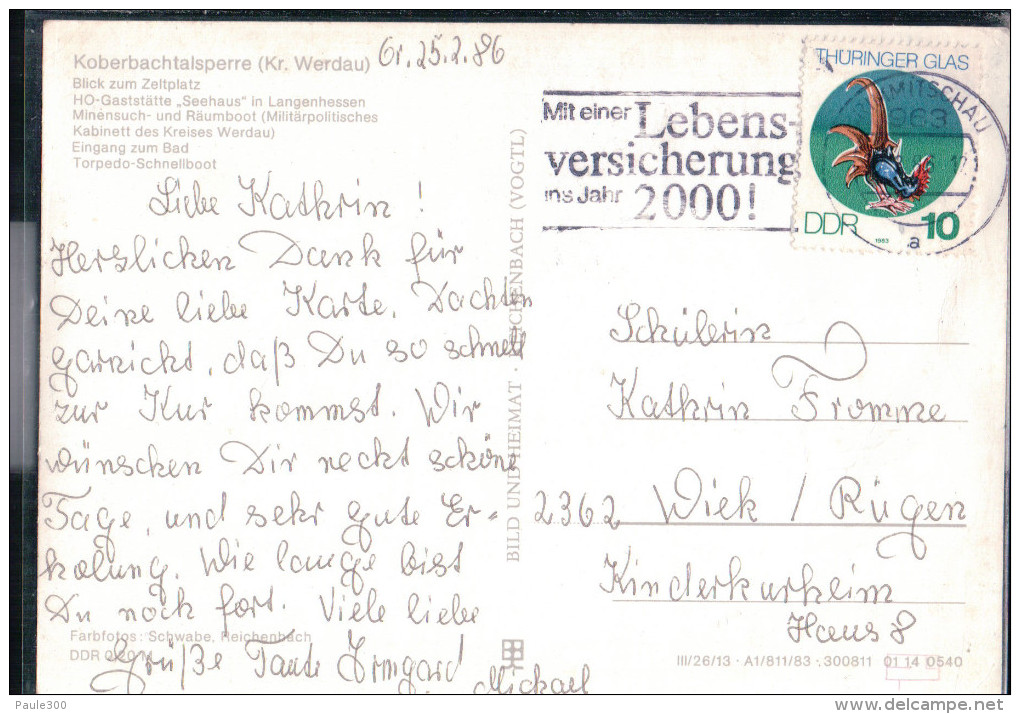 Koberbachtalsperre (Kr. Werdau)
Blick zum Zeltplatz
HO-Gaststätte „Seehaus" in Langenhessen
Minensuch- und Räumboot (Militärpolitisches
Kabinett des Kreises Werdau)
Eingang zum Bad
Torpedo-Schnellboot
Gr. 25.2.86
Liebe Kathrin!
Herzlichen Dank für
Deine liebe Karte. Dachten
garnicht, daß Du so schnell
zur Kur kommst. Wir
wünschen Dir recht schöne
Tage, und sehr gute Er=
holung. Wie lange bist
Du noch fort. Viele liebe
Grüße Tante Irmgard
Michael
Farbfotos: Schwabe, Reichenbach
DDR 0,20 M
BILD UND HEIMAT · REICHENBACH (VOGTL)
Mit einer Lebens-
versicherung
ins Jahr 2000!
THÜRINGER GLAS
DDR 1983 10
CRIMMITSCHAU
963
a
Schülerin
Kathrin Fromme
2362 Wiek / Rügen
Kinderkurheim
Haus 8
III/26/13 · A1/811/83 · 300811 01 14 0540
Paule300
www.delcampe.net